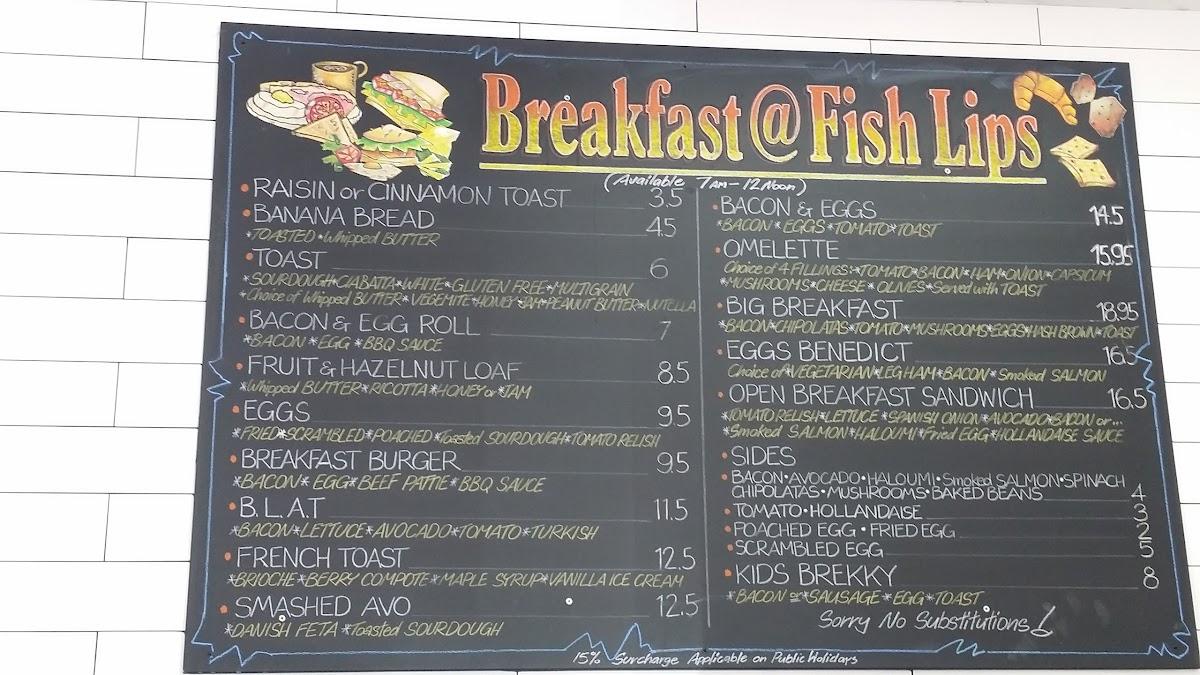 Breakfast @ Fish Lips
(Available 7AM-12Noon)
RAISIN or CINNAMON TOAST 3.5
BANANA BREAD 4.5
*TOASTED *Whipped BUTTER
TOAST 6
*SOURDOUGH*CIABATTA*WHITE*GLUTEN FREE*MULTIGRAIN
*Choice of Whipped BUTTER*VEGEMITE*HONEY*JAM*PEANUT BUTTER*NUTELLA
BACON & EGG ROLL 7
*BACON *EGG *BBQ SAUCE
FRUIT & HAZELNUT LOAF 8.5
*Whipped BUTTER*RICOTTA*HONEY or *JAM
EGGS 9.5
*FRIED*SCRAMBLED*POACHED*Toasted SOURDOUGH*TOMATO RELISH
BREAKFAST BURGER 9.5
*BACON* EGG*BEEF PATTIE*BBQ SAUCE
B.L.A.T 11.5
*BACON*LETTUCE*AVOCADO*TOMATO*TURKISH
FRENCH TOAST 12.5
*BRIOCHE*BERRY COMPOTE*MAPLE SYRUP*VANILLA ICE CREAM
SMASHED AVO 12.5
*DANISH FETA *Toasted SOURDOUGH
BACON & EGGS 14.5
*BACON *EGGS*TOMATO*TOAST
OMELETTE 15.95
Choice of 4 FILLINGS:*TOMATO*BACON*HAM*ONION*CAPSICUM
*MUSHROOMS*CHEESE*OLIVES*Served with TOAST
BIG BREAKFAST 18.95
*BACON*CHIPOLATAS*TOMATO*MUSHROOMS*EGGS*HASH BROWN*TOAST
EGGS BENEDICT 16.5
Choice of*VEGETARIAN*LEG HAM*BACON*Smoked SALMON
OPEN BREAKFAST SANDWICH 16.5
*TOMATO RELISH*LETTUCE*SPANISH ONION*AVOCADO*BACON or...
*Smoked SALMON*HALOUMI*Fried EGG*HOLLANDAISE SAUCE
SIDES
BACON•AVOCADO•HALOUMI•Smoked SALMON•SPINACH
CHIPOLATAS•MUSHROOMS•BAKED BEANS 4
TOMATO•HOLLANDAISE 3
POACHED EGG•FRIED EGG 2
SCRAMBLED EGG 5
KIDS BREKKY 8
*BACON or *SAUSAGE *EGG*TOAST
Sorry No Substitutions!
15% Surcharge Applicable on Public Holidays